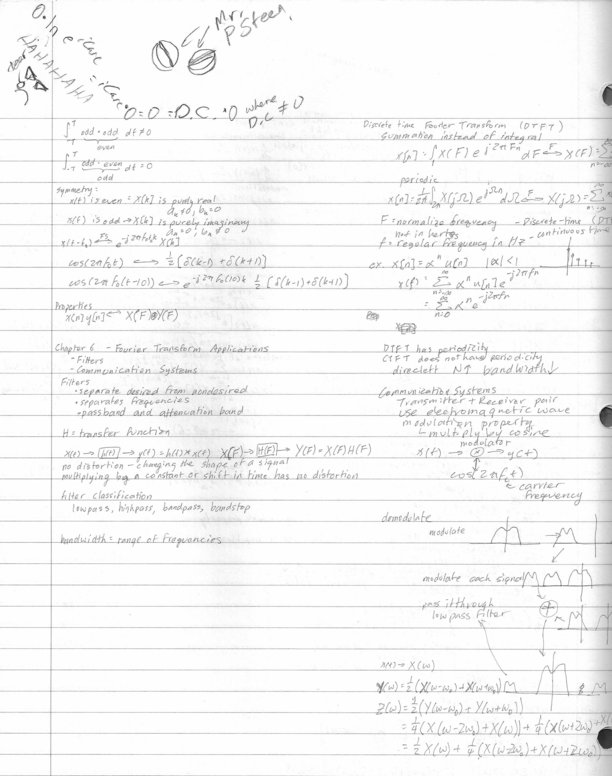 Mr.
PSteen.
HAHAHAHA
0=0 = D.C. · 0 where
D.C ≠ 0
∫_T odd · odd dt ≠ 0
even
∫_T odd · even dt = 0
odd
Symmetry=
x(t) is even = X[k] is purely real
aₙ≠0, bₙ=0
x(t) is odd → X[k] is purely imaginary
aₙ=0, bₙ≠0
cos(2πf₀t) ⟷ ½[δ(k-1)+δ(k+1)]
cos(2πf₀(t-10)) ⟷ e^{-j2πf₀(10)k} ½[δ(k-1)+δ(k+1)]
Properties
x[n]y[n] ⟷ X(F)⊛Y(F)
Chapter 6 - Fourier Transform Applications
·Filters
·Communication Systems
Filters
·separate desired from nondesired
·separates frequencies
·passband and attenuation band
H = transfer function
x(t) → [h(t)] → y(t) = h(t)*x(t) X(F) → [H(F)] → Y(F) = X(F)H(F)
no distortion - changing the shape of a signal
multiplying by a constant or shift in time has no distortion
filter classification
lowpass, highpass, bandpass, bandstop
bandwidth = range of frequencies
Discrete time Fourier Transform (DTFT)
summation instead of integral
x[n] = ∫₁ X(F) e^{j2πFn} dF ⟷F X(F) = Σ
periodic
x[n] = 1/2π ∫ X(jΩ) e^{jΩn} dΩ ⟷F X(jΩ) = Σ
F = normalize frequency - Discrete-time (DT
not in hertz
- continuous time
f = regular frequency in Hz
ex. x[n] = αⁿ u[n] |α| < 1
X(f) = Σ αⁿ u[n] e^{-j2πfn}
= Σ αⁿ e^{-j2πfn}
n=0
DTFT has periodicity
CTFT does not have periodicity
N↑ bandwidth↓
Communication Systems
Transmitter + Receiver pair
use electromagnetic wave
modulation property
↳ multiply by cosine
modulator
x(t) → ⊗ → y(t)
cos(2πf_c t)
carrier
frequency
demodulate
modulate
modulate each signal
pass it through
low pass filter
x(t) → X(ω)
Y(ω) = ½(X(ω-ω₀)+X(ω+ω₀))
Z(ω) = ½(Y(ω-ω₀) + Y(ω+ω₀))
= ¼(X(ω-2ω₀)+X(ω)) + ¼(X(ω+2ω₀)+X(
= ½X(ω) + ¼(X(ω-2ω₀)+X(ω+2ω₀)